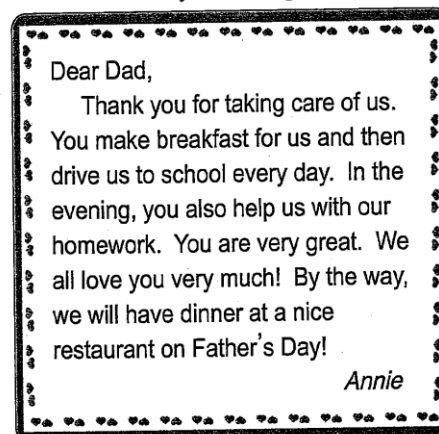 Dear Dad,
Thank you for taking care of us.
You make breakfast for us and then
drive us to school every day. In the
evening, you also help us with our
homework. You are very great. We
all love you very much! By the way,
we will have dinner at a nice
restaurant on Father's Day!
Annie